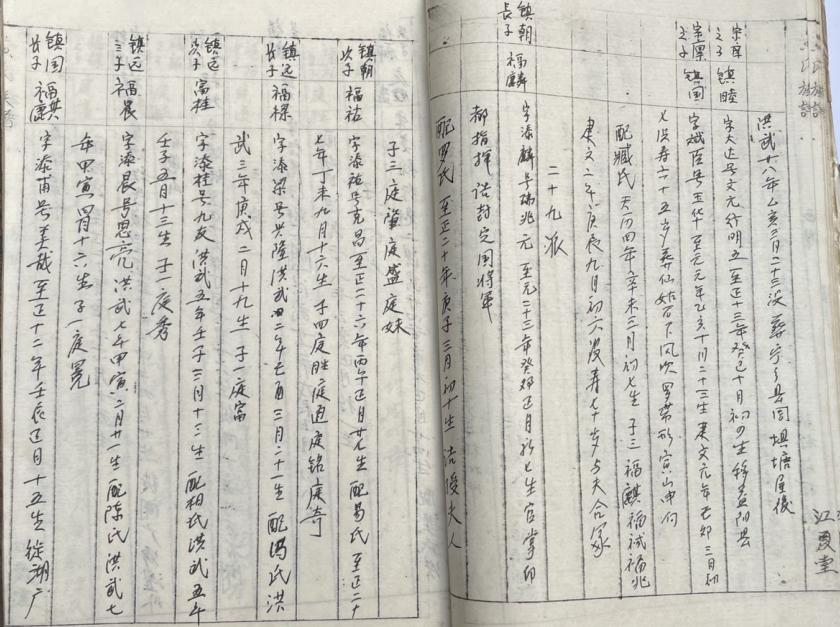 江夏堂
洪武廿八年乙亥三月二十三没葬宁乡县同坝塘屋后
宗厚之子 镇睦 字大达号文元行明五 至正十三年癸巳十月初四生 移益阳县
宗厚之子 镇国 字斌臣号玉华 至元元年乙亥十月二十三生 建文元年己卯三月初
七没寿六十五岁葬仙姑石下风吹罗带形寅山申向
配臧氏 天历四年辛未三月初七生 子三 福麒福诚福兆
建文二年庚辰九月初六没寿七十岁与夫合冢
二十九派
镇朝长子 福麟 字添麟号瑞兆 元至元二十三年癸卯正月初七生 官掌印
都指挥 诰封定国将军
配罗氏 至正二十年庚子三月初十生 诰授夫人
子三 庭肇 庭盛 庭妹
镇朝次子 福祐 字添祐号克昌 至正二十六年丙午正月廿七生 配易氏 至正二十
七年丁未九月十六生 子四 庭胜 庭道 庭铭 庭奇
镇远长子 福梁 字添梁号兴隆 洪武二年己酉三月二十一生 配冯氏 洪
武三年庚戌二月十九生 子一 庭富
镇远次子 富桂 字添桂号九友 洪武五年壬子三月十三生 配相氏 洪武五年
壬子五月十三生 子一庭秀
镇远三子 福晨 字添晨号思亮 洪武七年甲寅二月廿一生 配陈氏 洪武七
年甲寅四月十六生 子一庭冕
镇国长子 福麒 字添甫号美哉 至正十二年壬辰正月十五生 徙湖广